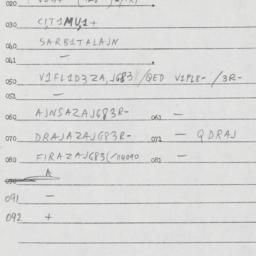 020
030 C,T1MU,1+
040 SARB1TALAJN
041 —
050 V1FL1D3ZA,J683/QED V1PLB- /3R-
051 —
060 AJNSAZAJ683R- 061 —
070 DRAJAZAJ683R- 071 — QDRAJ
080 FIRAZAJ683(/114090 081 —
090 A
091 —
092 +